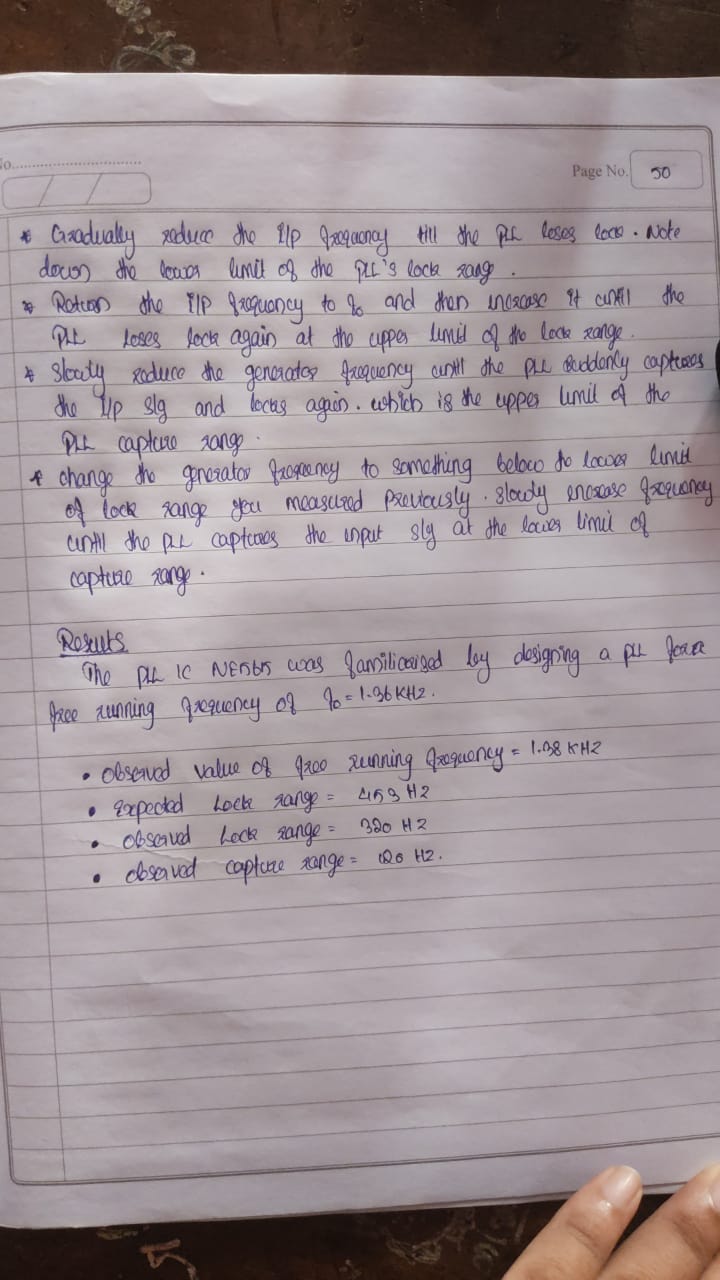 No.
Page No. 50
* Gradually reduce the I/p frequency till the PLL loses lock. Note
down the lower limit of the PLL's lock rang.
* Return the I/p frequency to fo and then increase it until the
PLL loses lock again at the upper limit of the lock range.
* Slowly reduce the generator frequency until the PLL suddenly captures
the I/p sig and locks again. which is the upper limit of the
PLL capture range.
* change the generator frequency to something below to lower limit
of lock range you measured previously. slowly increase frequency
until the PLL captures the input sig at the lower limit of
capture range.
Results
The PLL IC NE565 was familiarised by designing a PLL for a
free running frequency of fo = 1.36 KHz.
• observed value of free running frequency = 1.38 KHZ
• Expected Lock range = 453 HZ
• observed Lock range = 320 HZ
• observed capture range = HZ.